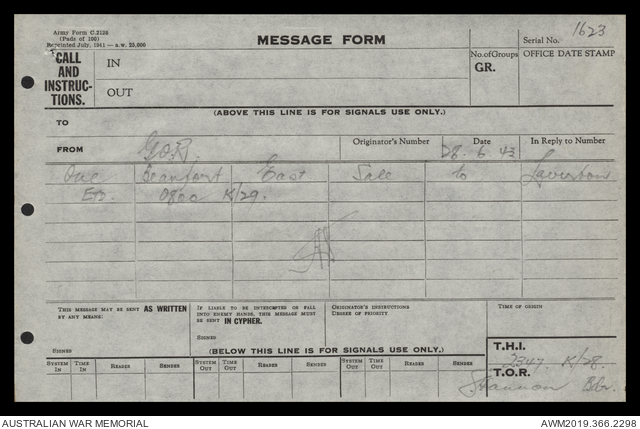 Army Form C.2128
(Pads of 100)
Reprinted July, 1941—s.w. 25,000
MESSAGE FORM
Serial No. 1623
CALL AND INSTRUC-TIONS.
IN
OUT
No. of Groups
GR.
OFFICE DATE STAMP
(ABOVE THIS LINE IS FOR SIGNALS USE ONLY.)
TO
FROM G.O.R.
Originator's Number
Date 28.6.43
In Reply to Number
One Beaufort East Sale to Laverton
0800 K/29.
THIS MESSAGE MAY BE SENT AS WRITTEN BY ANY MEANS:
IF LIABLE TO BE INTERCEPTED OR FALL INTO ENEMY HANDS, THIS MESSAGE MUST BE SENT IN CYPHER.
ORIGINATOR'S INSTRUCTIONS
DEGREE OF PRIORITY
TIME OF ORIGIN
SIGNED
SIGNED
(BELOW THIS LINE IS FOR SIGNALS USE ONLY.)
T.H.I. 2347 K/28.
SYSTEM IN
TIME IN
READER
SENDER
SYSTEM OUT
TIME OUT
READER
SENDER
SYSTEM OUT
TIME OUT
READER
SENDER
T.O.R.
Shannon Bdr.
AUSTRALIAN WAR MEMORIAL
AWM2019.366.2298